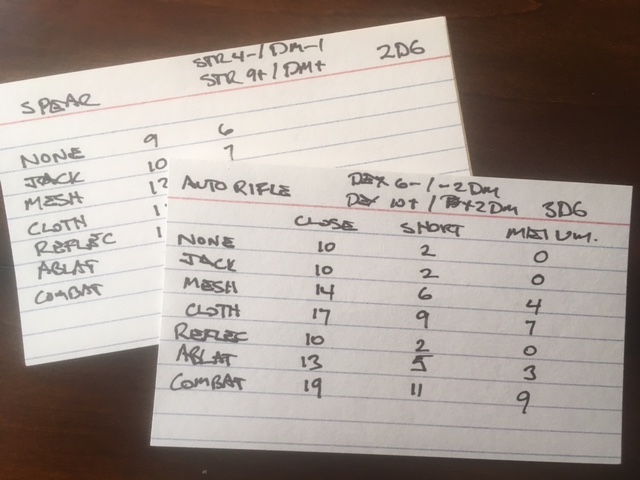 STR 4-/DM-1
STR 9+/DM+
2D6
SPEAR
NONE 9 6
JACK 10 7
MESH 12
CLOTH 1
REFLEC 1
ABLAT
COMBAT
AUTO RIFLE
DEX 6-/-2DM
DEX 10+/+2DM
3D6
CLOSE SHORT
NONE 10 2 0
JACK 10 2 0
MESH 14 6 4
CLOTH 17 9 7
REFLEC 10 2 0
ABLAT 13 5 3
COMBAT 19 11 9